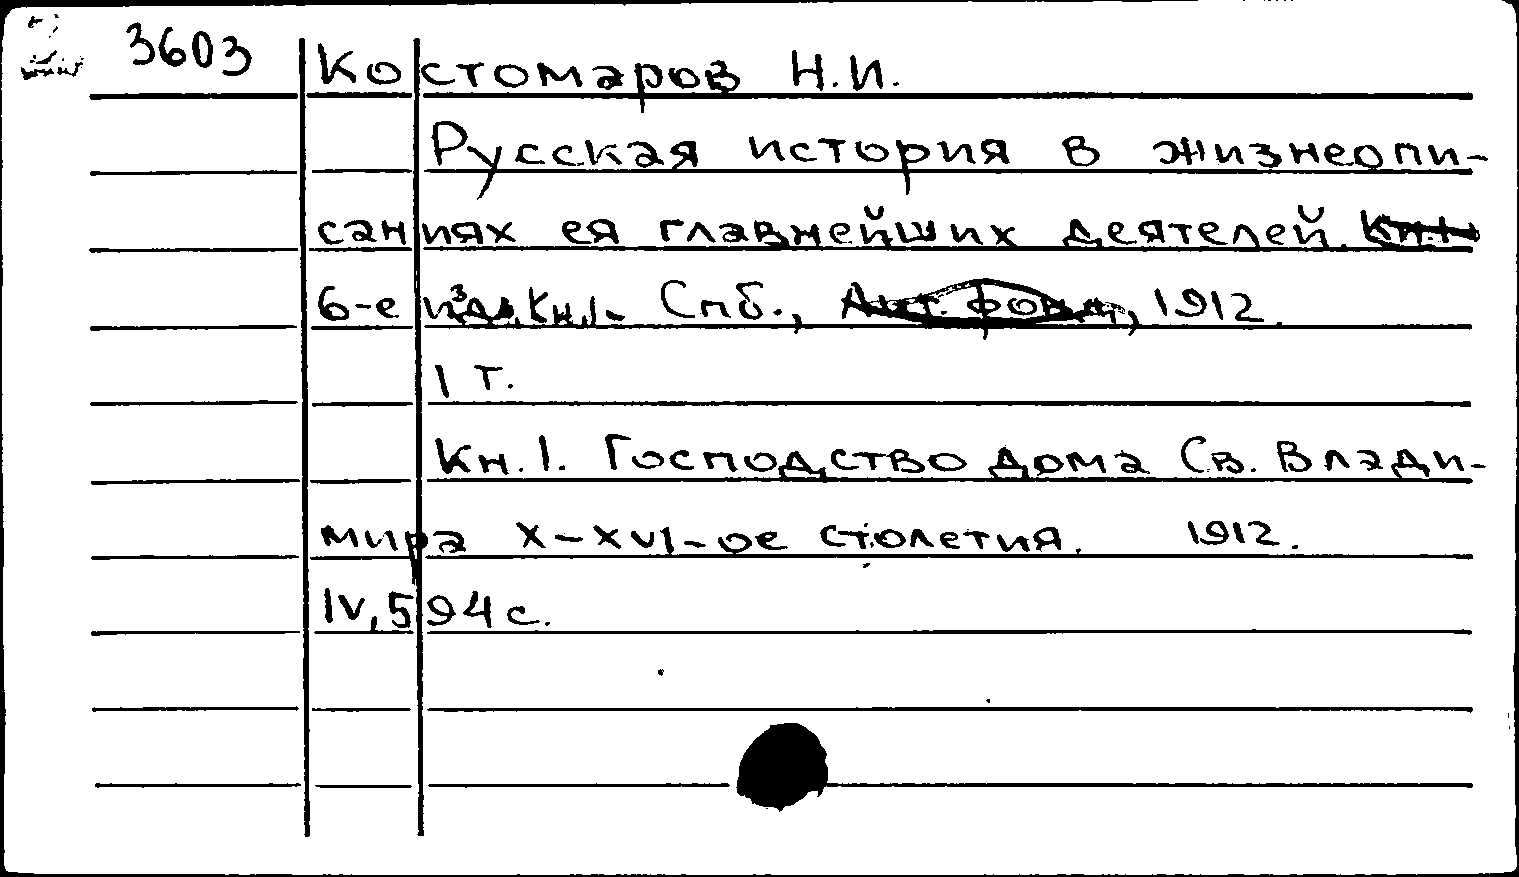 3603
Костомаров Н.И.
Русская история в жизнеопи-
саниях ея главнейших деятелей. Кн.1
6-е изд. Кн.1- Спб., Лит. фонд, 1912.
1 т.
Кн.1. Господство дома Св. Влади-
мира X-XVI-ое столетия. 1912.
IV, 594 с.